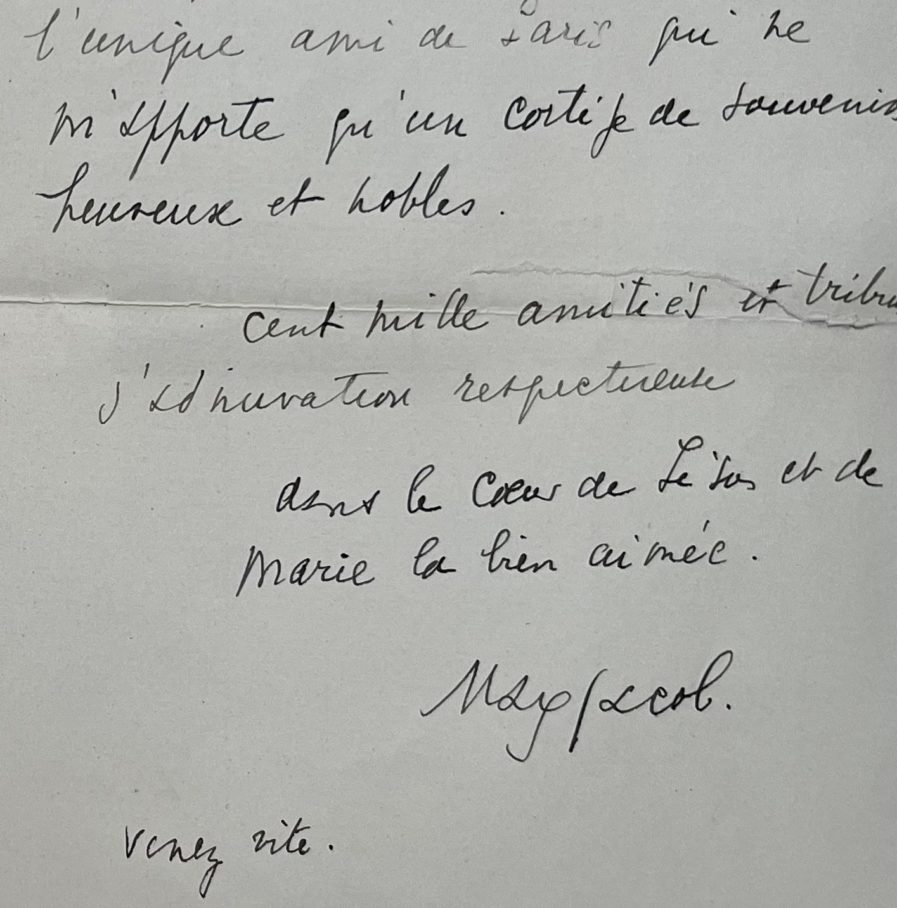 l'unique ami de Paris qui ne
m'apporte qu'un cortège de souvenirs
heureux et nobles.
cent mille amitiés et tribu
d'admiration respectueuse
dans le Cœur de Jésus et de
Marie la bien aimée.
Max Jacob.
venez vite.